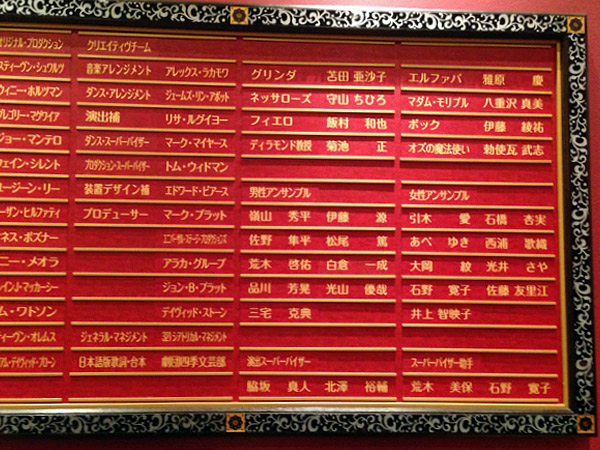 オリジナル・プロダクション
スティーヴン・シュワルツ
ウィニー・ホルツマン
グレゴリー・マグワイア
ジョー・マンテロ
ウェイン・シレント
ユージーン・リー
スーザン・ヒルファティ
ネス・ポズナー
ニー・メオラ
ム・ワトソン
ティーヴン・オレムス
クリエイティヴチーム
音楽アレンジメント アレックス・ラカモワ
ダンス・アレンジメント ジェームズ・リン・アボット
演出補 リサ・ルグイヨー
ダンス・スーパーバイザー マーク・マイヤース
プロダクション・スーパーバイザー トム・ウィドマン
装置デザイン補 エドワード・ピアース
プロデューサー マーク・プラット
ユニバーサル・ステージ・プロダクションズ
アラカ・グループ
ジョン・B・プラット
デイヴィッド・ストーン
ジェネラル・マネジメント 321シアトリカル・マネジメント
日本語版歌詞・台本 劇団四季文芸部
グリンダ 苫田 亜沙子
ネッサローズ 守山 ちひろ
フィエロ 飯村 和也
ディラモンド教授 菊池 正
男性アンサンブル
嶺山 秀平 伊藤 源
佐野 隼平 松尾 篤
荒木 啓佑 白倉 一成
品川 芳晃 光山 優哉
三宅 克典
演出スーパーバイザー
脇坂 真人 北澤 裕輔
エルファバ 雅原 慶
マダム・モリブル 八重沢 真美
ボック 伊藤 綾祐
オズの魔法使い 勅使瓦 武志
女性アンサンブル
引木 愛 石橋 杏実
あべ ゆき 西浦 歌織
大岡 紋 光井 さや
石野 寛子 佐藤 友里江
井上 智映子
スーパーバイザー助手
荒木 美保 石野 寛子